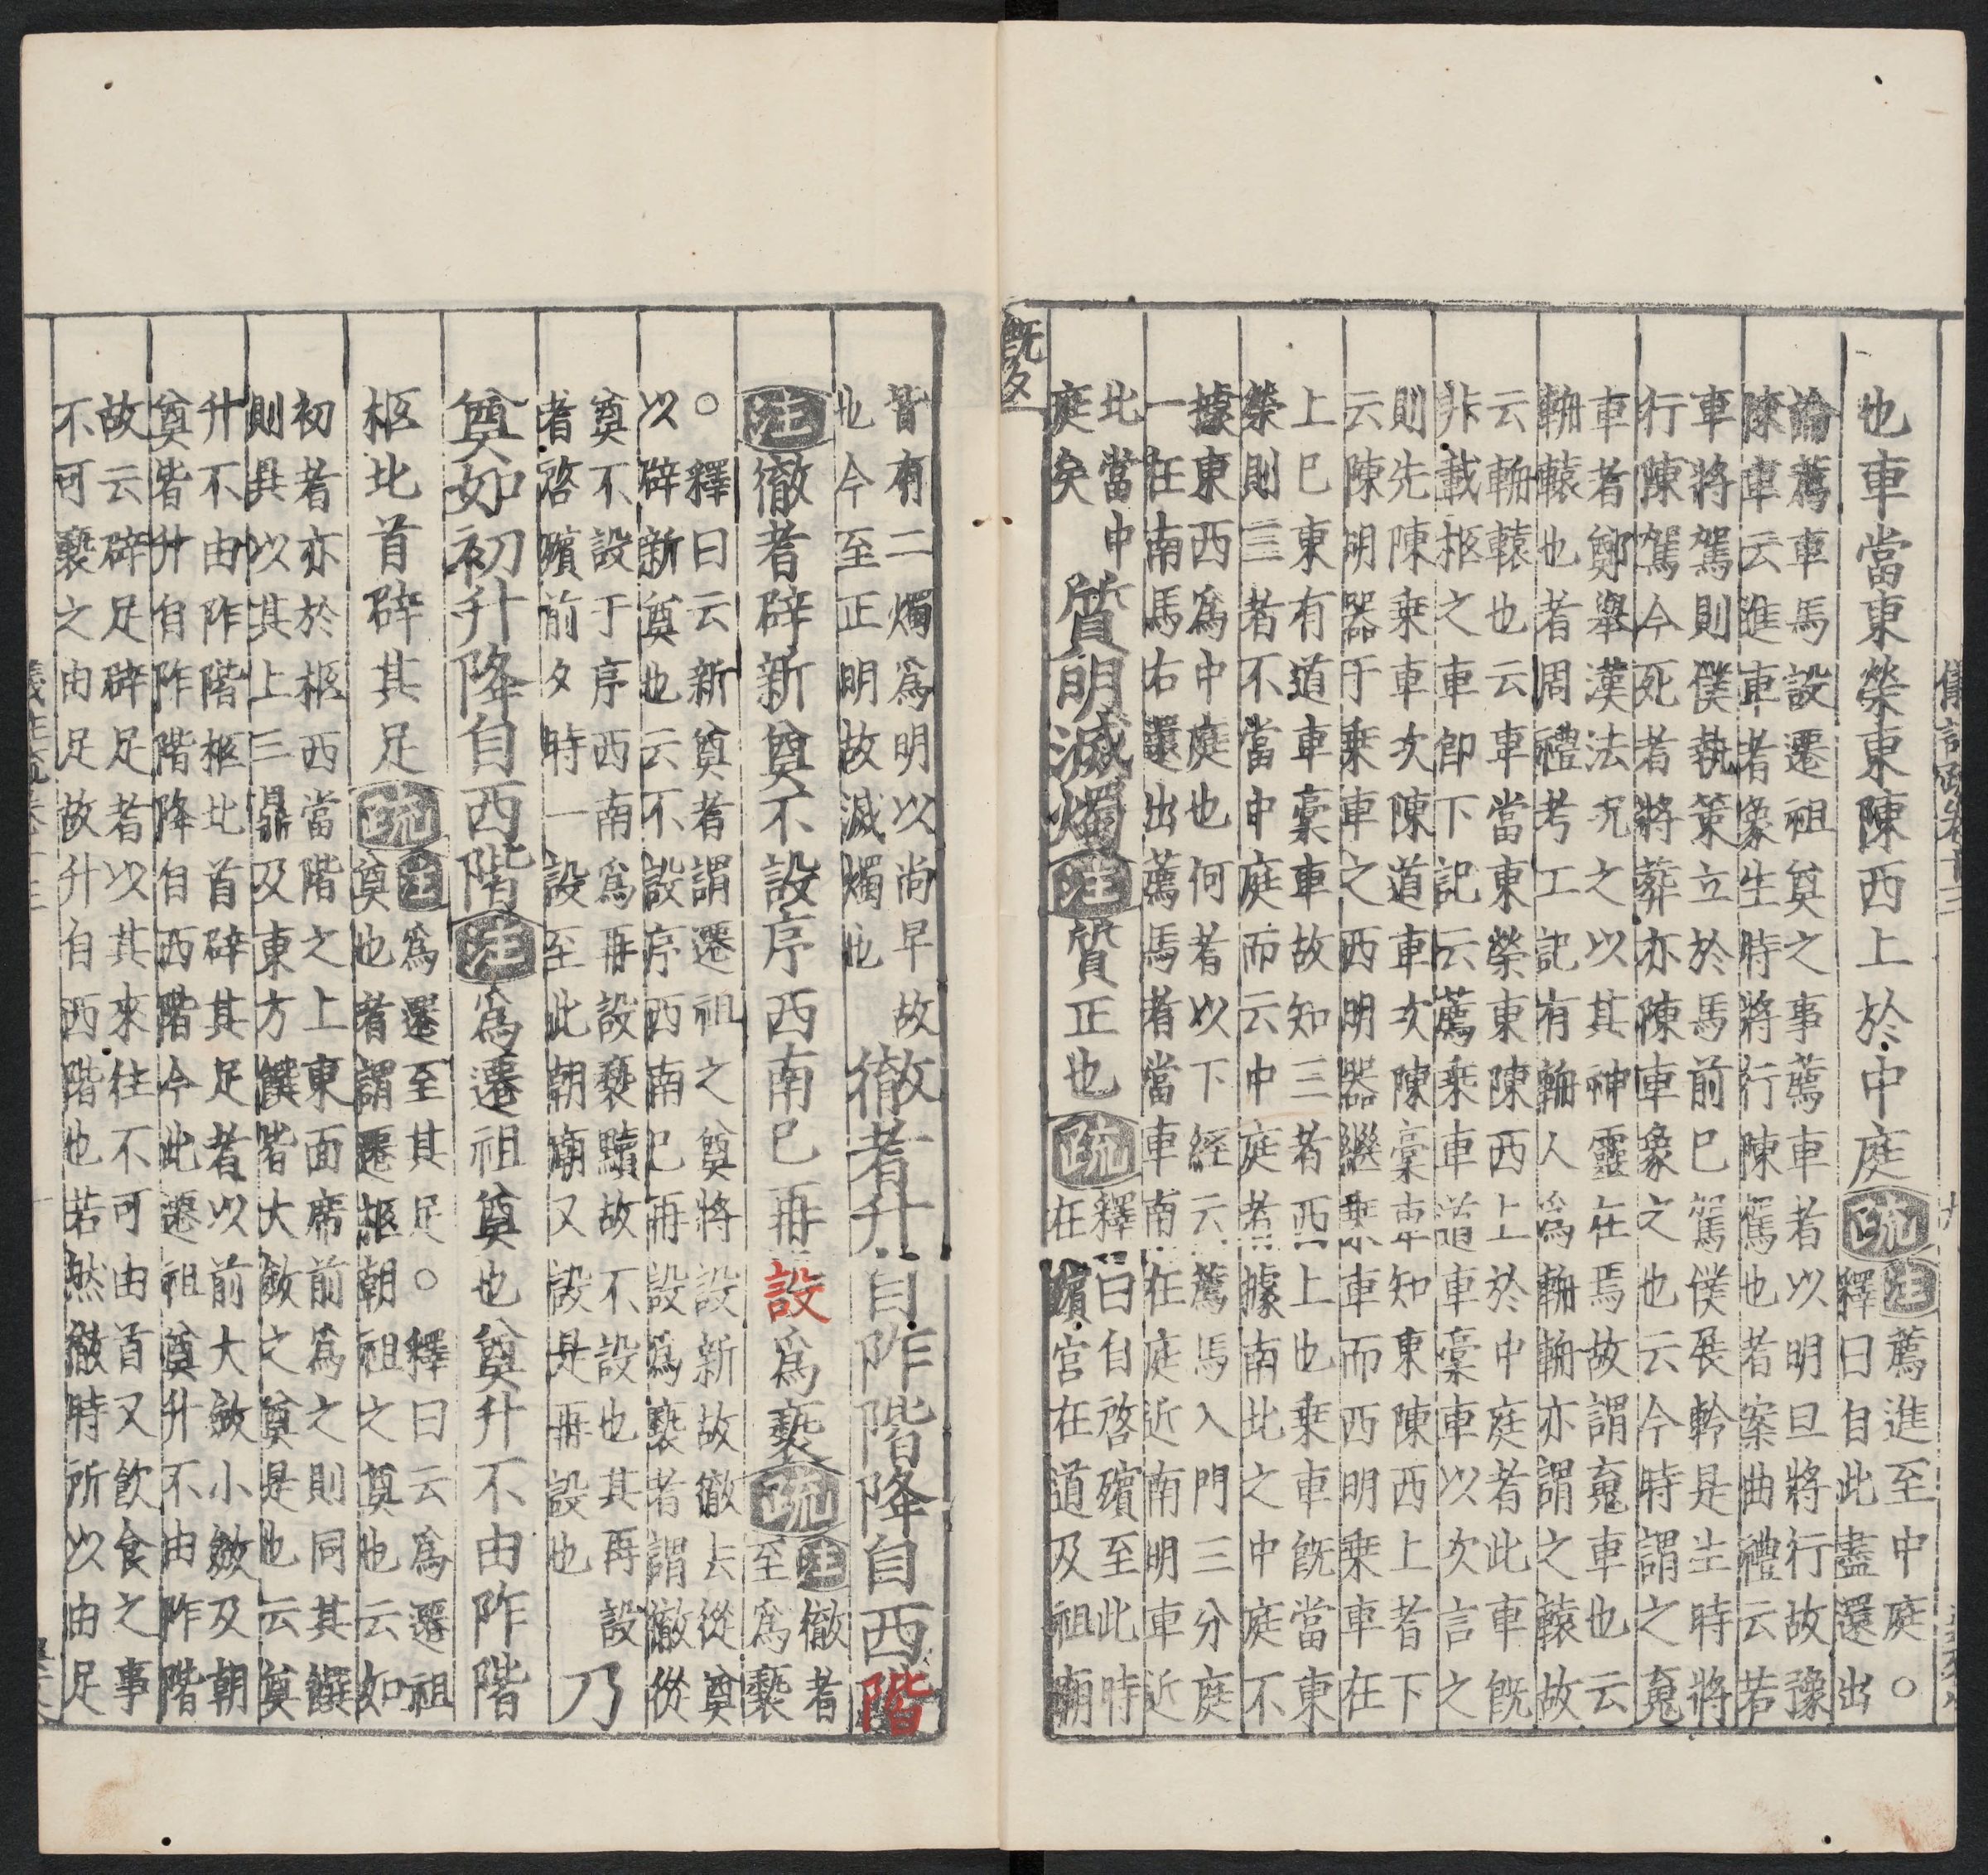 也車當東榮東陳西上於中庭疏注薦進至中庭○
釋曰自此盡還出
論薦車馬設遷祖奠之事薦車者以明旦將行故豫
陳車云進車者象生時將行陳駕也者案曲禮云若
車將駕則僕執策立於馬前已駕僕展軨是生時將
行陳駕今死者將葬亦陳車象之也云今時謂之䰟
車者鄭舉漢法況之以其神靈在焉故謂䰟車也云
輈轅也者周禮考工記有輈人爲輈輈亦謂之轅故
云輈轅也云車當東榮東陳西上於中庭者此車既
非載柩之車即下記云薦乗車道車槀車以次言之
則先陳乗車次陳道車次陳槀車知東陳西上者下
云陳明器于乗車之西明器繼乗車而西明乗車在
上已東有道車槀車故知三者西上也乗車既當東
榮則三者不當中庭而云中庭者據南北之中庭不
據東西爲中庭也何者以下經云薦馬入門三分庭
一在南馬右還出薦馬者當車南在庭近南明車近
北當中
庭矣
質明滅燭注質正也疏釋曰自啓殯至此時
在殯宫在道及祖廟
既夕
皆有二燭爲明以尚早故
也今至正明故滅燭也
徹者升自阼階降自西階
注徹者辟新奠不設序西南已再設爲褻疏注徹者
至爲褻
○釋曰云新奠者謂遷祖之奠將設新故徹去從奠
以辟新奠也云不設序西南已再設爲褻者謂徹從
奠不設于序西南爲再設褻黷故不設也其再設
者啓殯前夕時一設至此朝廟又設是再設也
乃
奠如初升降自西階注爲遷祖奠也奠升不由阼階
柩北首辟其足疏注爲遷至其足○釋曰云爲遷祖
奠也者謂遷柩朝祖之奠也云如
初者亦於柩西當階之上東面席前爲之則同其饌
則具以其上三鼎及東方饌皆大斂之奠是也云奠
升不由阼階柩北首辟其足者以前大斂小斂及朝
奠皆升自阼階降自西階今此遷祖奠升不由阼階
故云辟足辟足者以其來往不可由首又飲食之事
不可褻之由足故升自西階也若然徹時所以由足